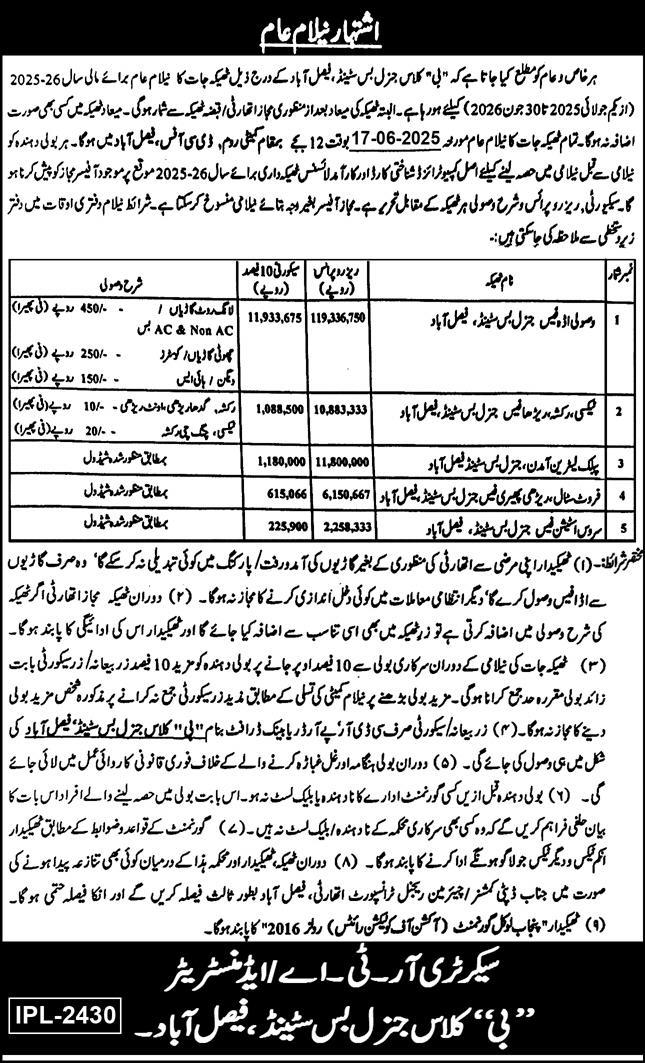 اشتہار نیلام عام
ہر خاص و عام کو مطلع کیا جاتا ہے کہ "بی" کلاس جنرل بس سٹینڈ، فیصل آباد کے درج ذیل ٹھیکہ جات کا نیلام عام برائے مالی سال 26-2025
(از یکم جولائی 2025 تا 30 جون 2026) کیلئے ہو رہا ہے۔ البتہ ٹھیکہ کی میعاد بعد از منظوری مجاز اتھارٹی / قبضہ ٹھیکہ سے شمار ہوگی۔ میعاد ٹھیکہ میں کسی بھی صورت
اضافہ نہ ہوگا۔ تمام ٹھیکہ جات کا نیلام عام مورخہ 17-06-2025 بوقت 12 بجے بمقام کمیٹی روم، ڈی سی آفس، فیصل آباد میں ہوگا۔ ہر بولی دہندہ کو
نیلامی سے قبل نیلامی میں حصہ لینے کیلئے اصل کمپیوٹرائزڈ شناختی کارڈ اور کارآمد لائسنس ٹھیکیداری برائے سال 26-2025 موقع پر موجود آفیسر مجاز کو پیش کرنا ہو
گا۔ سیکیورٹی، ریزرو پرائس و شرح وصولی ہر ٹھیکہ کے مقابل تحریر ہے۔ مجاز آفیسر بغیر وجہ بتائے نیلامی منسوخ کر سکتا ہے۔ شرائط نیلام دفتری اوقات میں دفتر
زیر دستخطی سے ملاحظہ کی جا سکتی ہیں:-
نمبر شمار نام ٹھیکہ ریزرو پرائس (روپے) سیکورٹی 10 فیصد (روپے) شرح وصولی
1 وصولی اڈہ فیس جنرل بس سٹینڈ، فیصل آباد 119,336,750 11,933,675 لانگ روٹ گاڑیاں / AC & Non AC بس - 450/- روپے (فی پھیرا)
چھوٹی گاڑیاں / کوسٹرز - 250/- روپے (فی پھیرا)
ویگن / ہائی ایس - 150/- روپے (فی پھیرا)
2 ٹیکسی، رکشہ، ریڑھا فیس جنرل بس سٹینڈ، فیصل آباد 10,883,333 1,088,500 رکشہ، گدھا ریڑھی، اونٹ ریڑھی - 10/- روپے (فی پھیرا)
ٹیکسی، چنگ چی رکشہ - 20/- روپے (فی پھیرا)
3 پبلک لیٹرین آمدن، جنرل بس سٹینڈ فیصل آباد 11,800,000 1,180,000 بمطابق منظور شدہ شیڈول
4 فروٹ سٹال، ریڑھی پھیری فیس جنرل بس سٹینڈ، فیصل آباد 6,150,667 615,066 بمطابق منظور شدہ شیڈول
5 سروس اسٹیشن فیس جنرل بس سٹینڈ، فیصل آباد 2,258,333 225,900 بمطابق منظور شدہ شیڈول
مختصر شرائط:- (۱) ٹھیکیدار اپنی مرضی سے اتھارٹی کی منظوری کے بغیر گاڑیوں کی آمد و رفت / پارکنگ میں کوئی تبدیلی نہ کر سکے گا، وہ صرف گاڑیوں
سے اڈا فیس وصول کرے گا، دیگر انتظامی معاملات میں کوئی دخل اندازی کرنے کا مجاز نہ ہوگا۔ (۲) دوران ٹھیکہ مجاز اتھارٹی اگر ٹھیکہ
کی شرح وصولی میں اضافہ کرتی ہے تو زر ٹھیکہ میں بھی اسی تناسب سے اضافہ کیا جائے گا اور ٹھیکیدار اس کی ادائیگی کا پابند ہوگا۔
(۳) ٹھیکہ جات کی نیلامی کے دوران سرکاری بولی سے 10 فیصد اوپر جانے پر بولی دہندہ کو مزید 10 فیصد زر بیعانہ / زر سیکورٹی بابت
زائد بولی مقررہ حد جمع کرانا ہوگی۔ مزید بولی بڑھنے پر نیلام کمیٹی کی تسلی کے مطابق مذید زر سیکورٹی جمع نہ کرانے پر مذکورہ شخص مزید بولی
دینے کا مجاز نہ ہوگا۔ (۴) زر بیعانہ / سیکورٹی صرف سی ڈی آر، پے آرڈر یا بینک ڈرافٹ بنام "بی" کلاس جنرل بس سٹینڈ، فیصل آباد کی
شکل میں ہی وصول کی جائے گی۔ (۵) دوران بولی ہنگامہ اور غل غپاڑہ کرنے والے کے خلاف فوری قانونی کاروائی عمل میں لائی جائے
گی۔ (۶) بولی دہندہ قبل ازیں کسی گورنمنٹ ادارے کا نادہندہ یا بلیک لسٹ نہ ہو۔ اس بابت بولی میں حصہ لینے والے افراد اس بات کا
بیان حلفی فراہم کریں گے کہ وہ کسی بھی سرکاری محکمہ کے نادہندہ / بلیک لسٹ نہ ہیں۔ (۷) گورنمنٹ کے قواعد و ضوابط کے مطابق ٹھیکیدار
انکم ٹیکس و دیگر ٹیکس جو لاگو ہونگے ادا کرنے کا پابند ہوگا۔ (۸) دوران ٹھیکہ، ٹھیکیدار اور محکمہ ہذا کے درمیان کوئی بھی تنازعہ پیدا ہونے کی
صورت میں جناب ڈپٹی کمشنر / چیئرمین ریجنل ٹرانسپورٹ اتھارٹی، فیصل آباد بطور ثالث فیصلہ کریں گے اور انکا فیصلہ حتمی ہوگا۔
(۹) ٹھیکیدار "پنجاب لوکل گورنمنٹ (آکشن آف کولیکشن رائٹس) رولز 2016" کا پابند ہوگا۔
سیکرٹری آر۔ٹی۔اے / ایڈمنسٹریٹر
"بی" کلاس جنرل بس سٹینڈ، فیصل آباد۔
IPL-2430